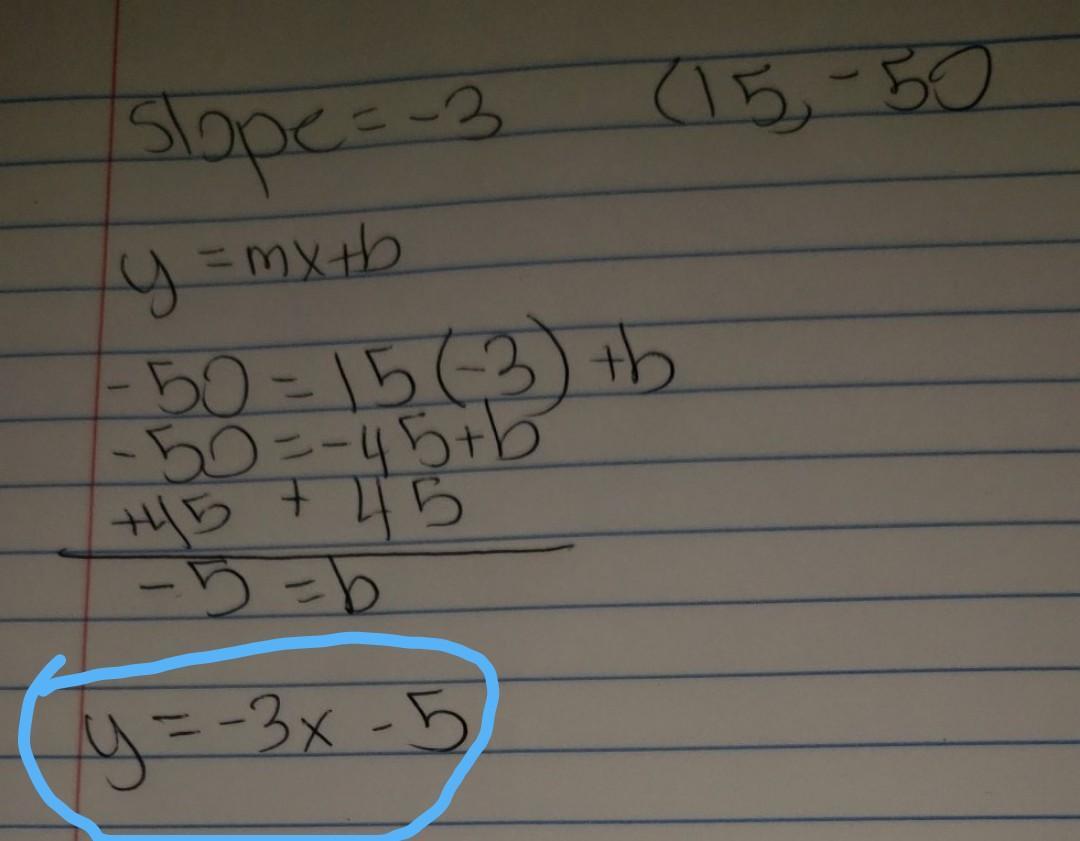 slope = -3 (15, -50
y = mx+b
-50 = 15(-3) +b
-50 = -45+b
+45 + 45
-5 = b
y = -3x - 5